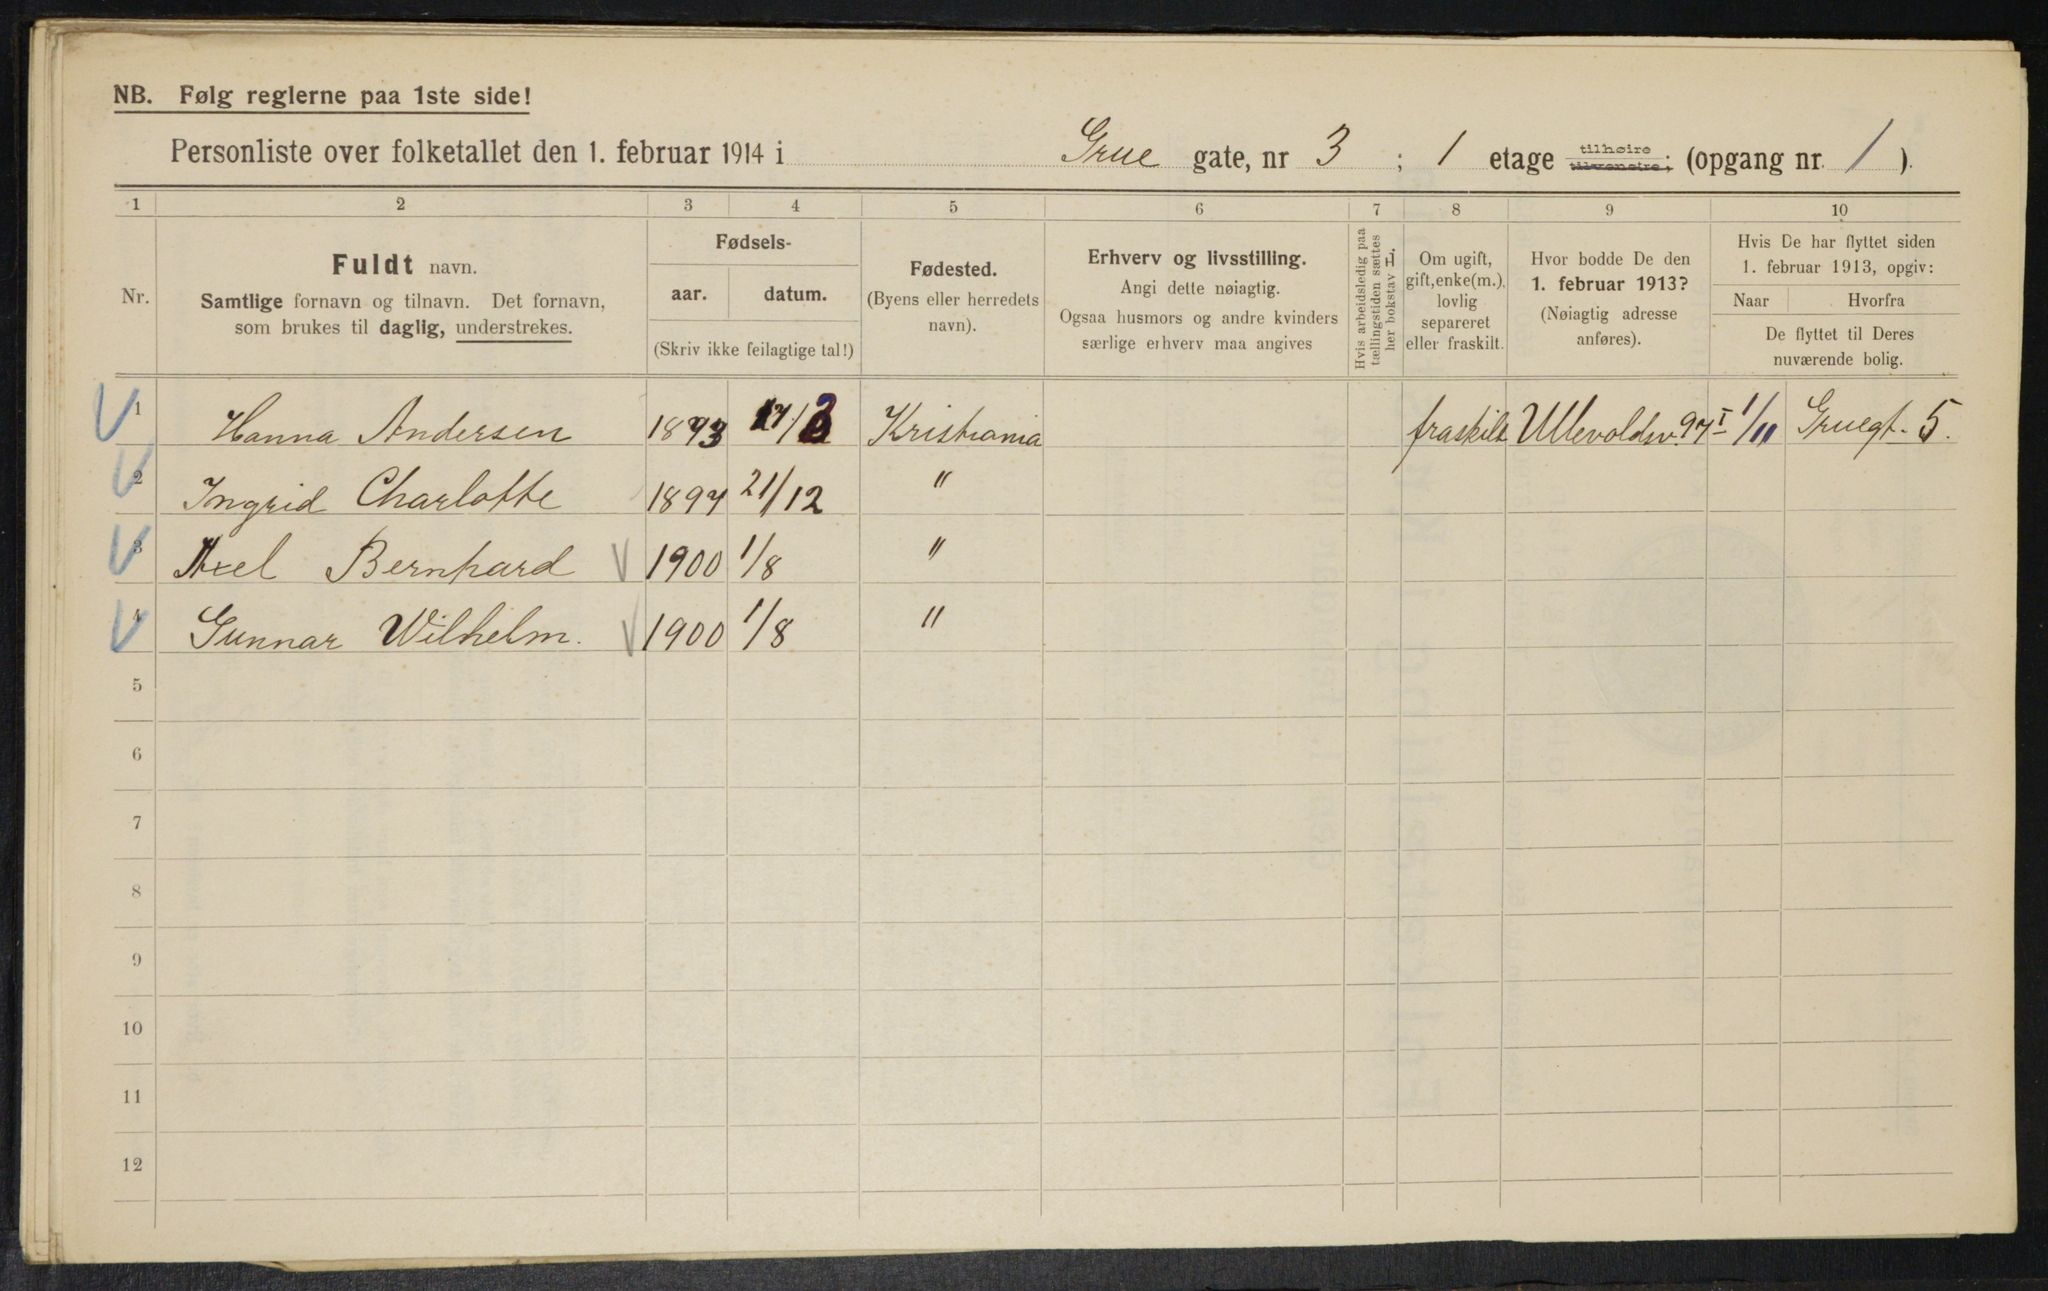 NB. Følg reglerne paa 1ste side!
Personliste over folketallet den 1. februar 1914 i Grue gate, nr 3 ; 1 etage tilhøire tilvenstre; (opgang nr. 1 ).
1 2 3 4 5 6 7 8 9 10
Nr.
Fuldt navn.
Samtlige fornavn og tilnavn. Det fornavn,
som brukes til daglig, understrekes.
Fødsels-
aar. datum.
(Skriv ikke feilagtige tal!)
Fødested.
(Byens eller herredets
navn).
Erhverv og livsstilling.
Angi dette nøiagtig.
Ogsaa husmors og andre kvinders
særlige erhverv maa angives
Hvis arbeidsledig paa
tællingstiden sættes
her bokstav L.
Om ugift,
gift, enke(m.),
lovlig
separeret
eller fraskilt.
Hvor bodde De den
1. februar 1913?
(Nøiagtig adresse
anføres).
Hvis De har flyttet siden
1. februar 1913, opgiv:
Naar Hvorfra
De flyttet til Deres
nuværende bolig.
1 Hanna Andersen 1873 Kristiania fraskilt Ullevoldsv. 97 I 1/11 Gruegt. 5.
2 Ingrid Charlotte 1897 21/12 "
3 Axel Bernhard 1900 1/8 "
4 Gunnar Wilhelm. 1900 1/8 "
5
6
7
8
9
10
11
12